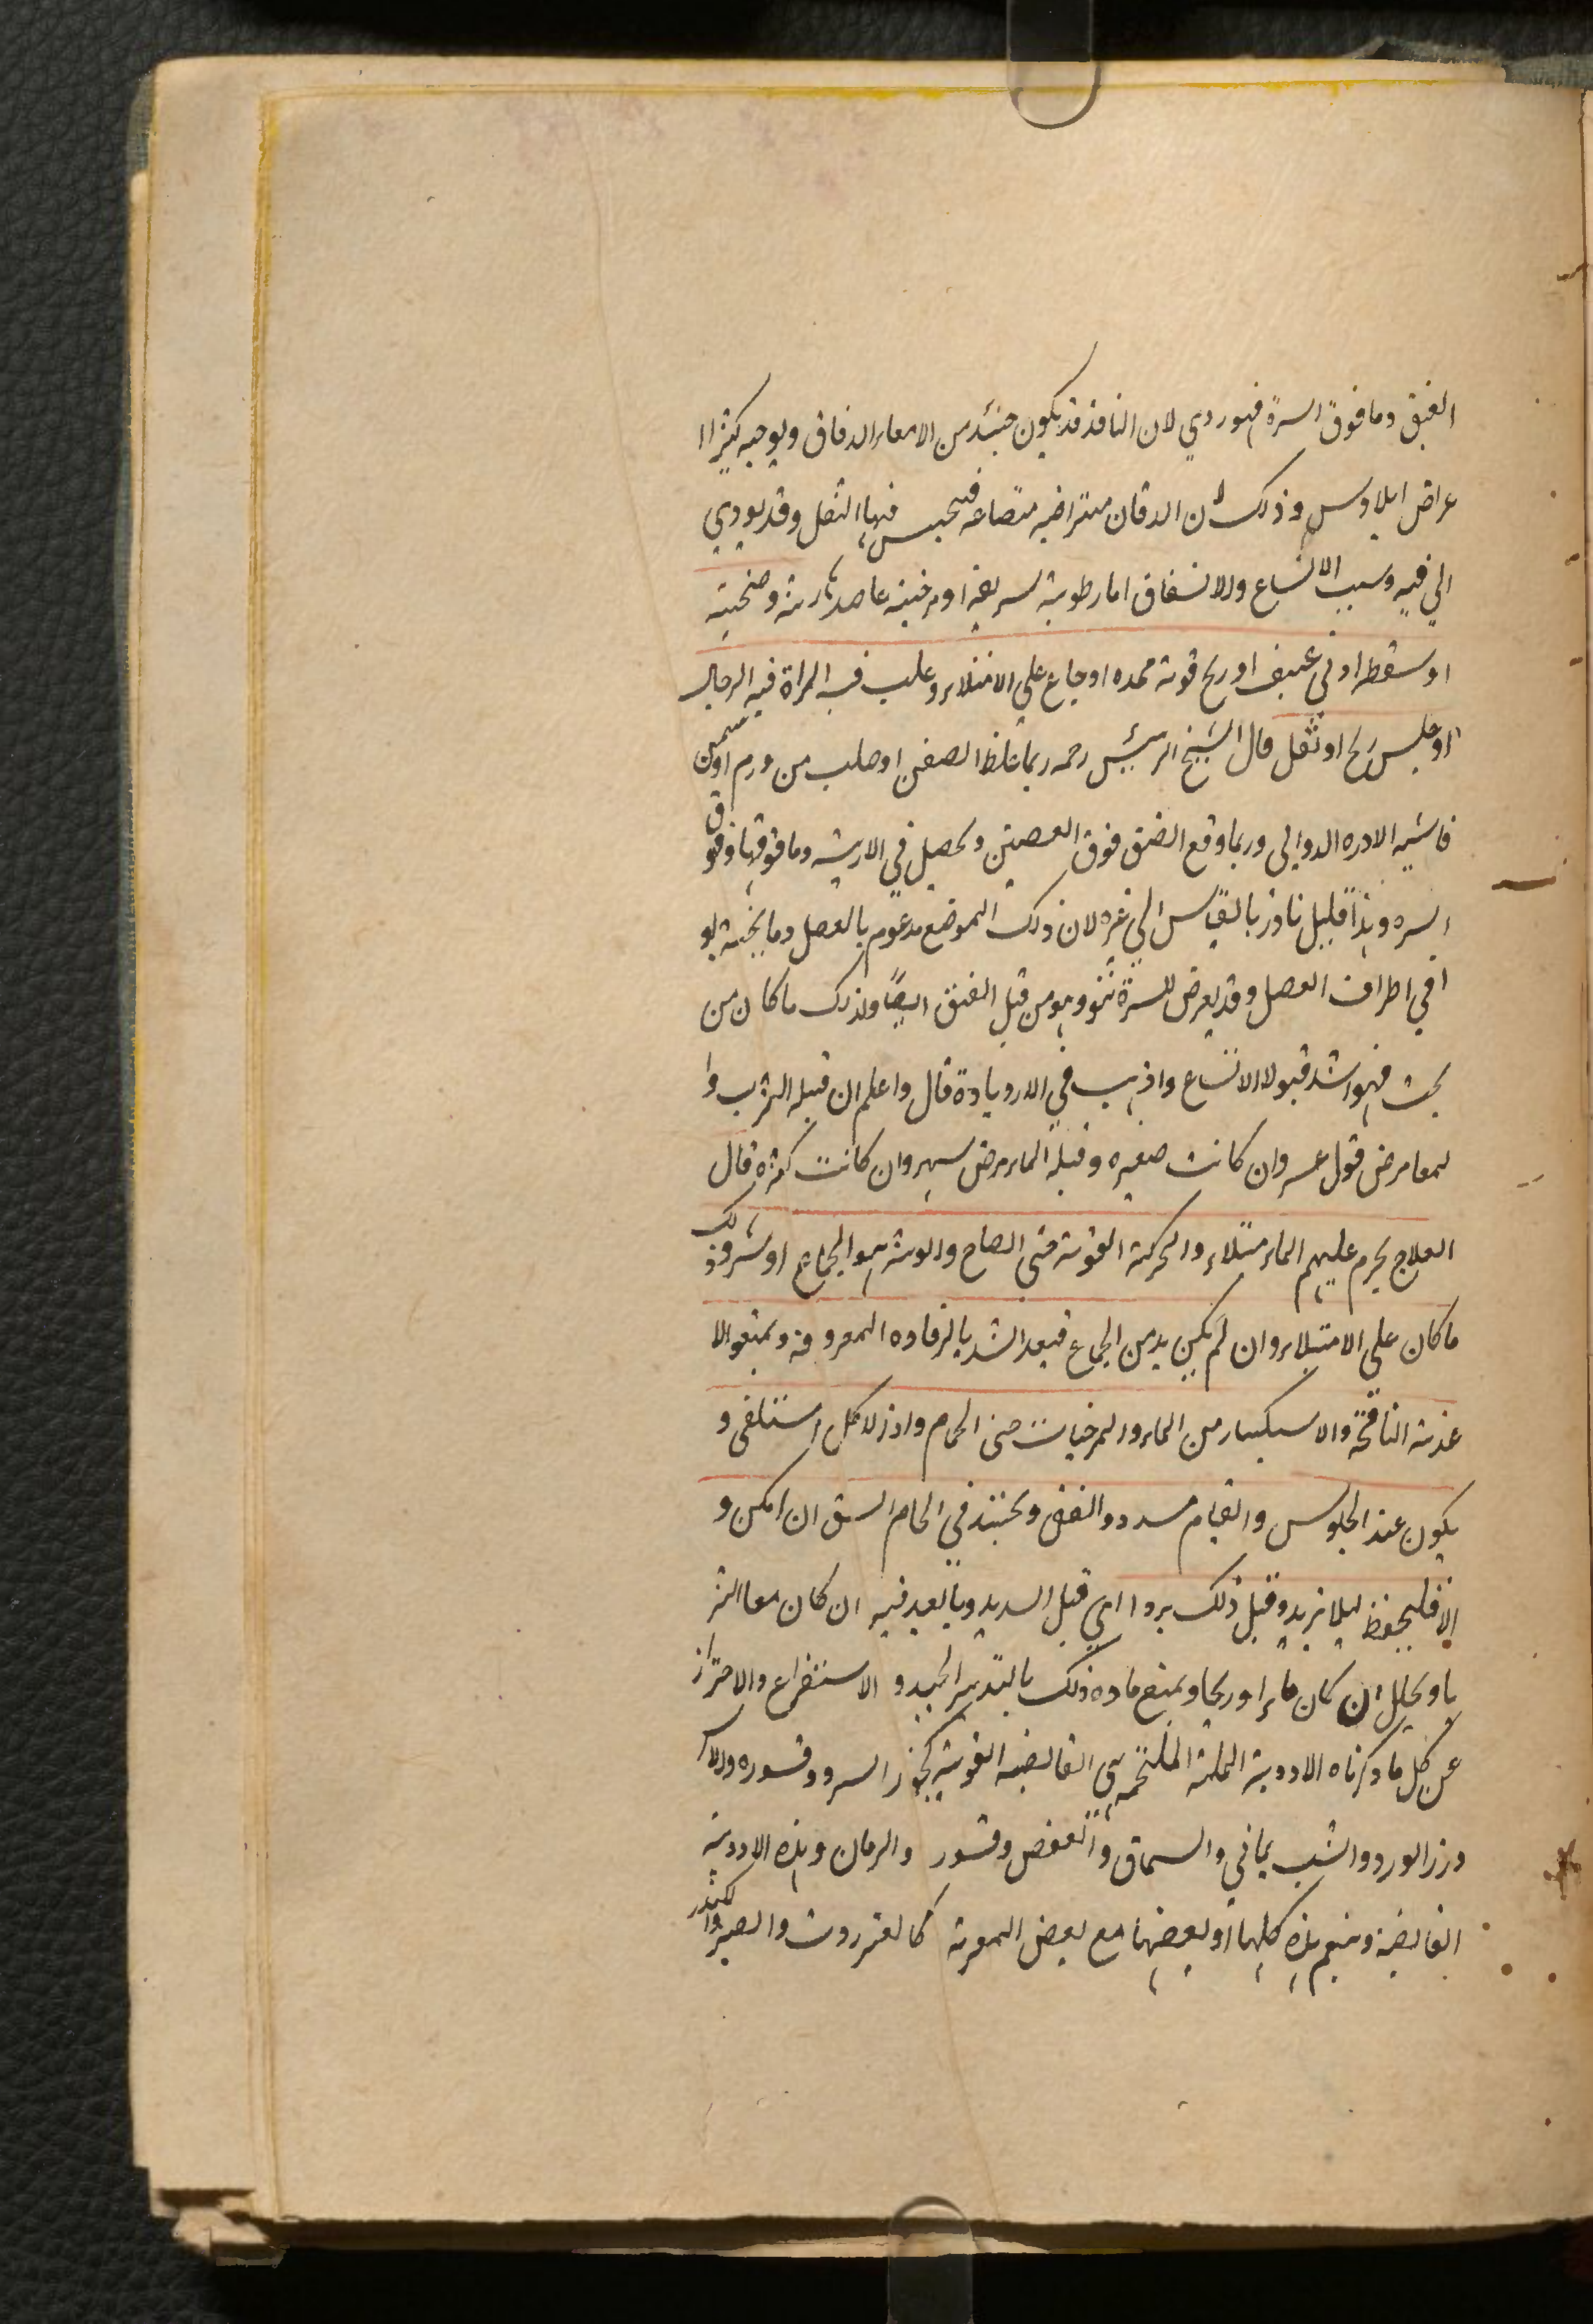 الفتق وما فوق السرة فهو ردي لان النافذ قد يكون حينئذ من الامعاء الدقاق ويوجبه كثيرا ا
عراض ايلاوس وذلك لان الدقان متراضيه متصاعه فيحبس فيها الثفل وقد يودي
الي قيه وسبب الاتساع والانشقاق اما رطوبة او مرخية وصيحته
او سقطه او في عنيف او ريح قوية ممدده او جاع علي الامتلاء وعلب فيه المراة فيه الرجال
او حبس ريح او ثفل قال الشيخ الرئيس رحمه ربما غلظ الصفن او صلب من ورم او سمين
فاشبه الادره الدوالي وربما وقع الفتق فوق العصبتين ويحصل في الاربيه وما فوقها وفوق
السره وهذا قليل نادر بالقياس الي غيره لان ذلك الموضع مدعوم بالعضل وما يحيه هو
ا في اطراف العضل وقد يعرض للسرة نتوء وهو من قبل الفتق ايضا ولذلك ما كان من
تحت فهو اشد قبولا الاتساع واذهب في الازديادة قال واعلم ان قيلة الثرب وا
لمعا مرض قول عسر وان كانت صغيره وقيلة الماء مرض سهر وان كانت كثره قال
العلاج يحرم عليهم الماء متلاء والحركة القوية حتي الصياح والوثبة هو الجماع او شر وذلك
ما كان علي الامتلاء وان لم يكن بد من الجماع فبعد الشد بالرفاده المعروفة ويمنعوا الا
غذية النافخة والاستكثار من الماء والمرخيات حتي الحمام واذ لاكل استلقي و
يكون عند الجلوس والقيام مسدود الفتق ويجتند في الحمام السبق ان امكن و
الا فليحفظ ليلا يزيد وقبل ذلك بردا اي قبل السديد وبالعيد فيه ان كان معا الثر
با ويحلل ان كان ماء او ريحا ويمنع ماده ذلك بالتدبير الجيد و الاستفراغ والاحتراز
عن كل ما ذكرناه الادوية الملتحمه هي القابضه القوية كجوز السرو وقسوره والا
وزر الورد والشب يماني والسماق والعفص وقسور والرمان وهذه الادوية
القابضة وهذه كلها او بعضها مع بعض المعرية كالعنزروت والصبر والكندر